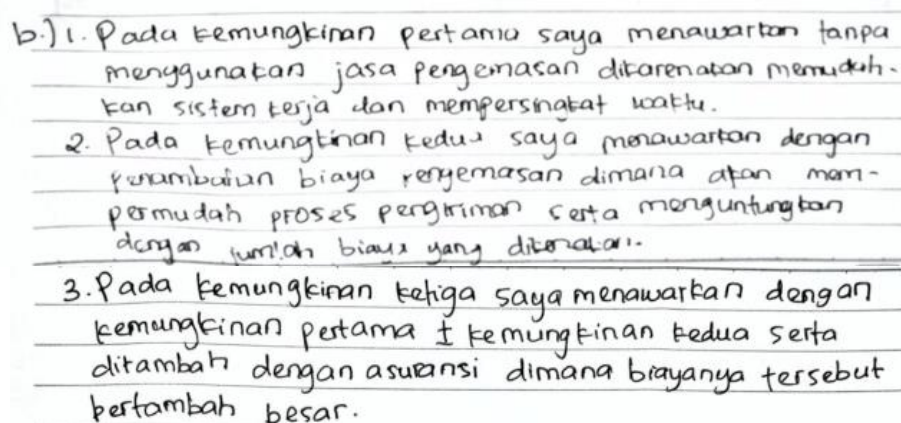 b.) 1. Pada kemungkinan pertama saya menawarkan tanpa
menggunakan jasa pengemasan dikarenakan memudah-
kan sistem kerja dan mempersingkat waktu.
2. Pada kemungkinan kedua saya menawarkan dengan
penambahan biaya pengemasan dimana akan mem-
permudah proses pengiriman serta menguntungkan
dengan jumlah biaya yang dikenakan.
3. Pada kemungkinan ketiga saya menawarkan dengan
kemungkinan pertama I kemungkinan kedua serta
ditambah dengan asuransi dimana biayanya tersebut
bertambah besar.